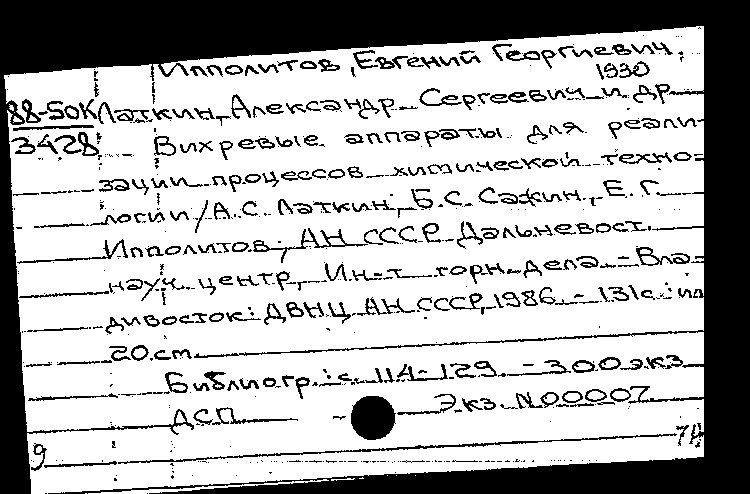 Ипполитов, Евгений Георгиевич,
1930
88-50К Латкин, Александр Сергеевич и др
3428 Вихревые аппараты для реали-
зации процессов химической техно-
логии / А.С. Латкин, Б.С. Сажин, Е.Г.
Ипполитов; АН СССР Дальневост.
науч. центр, Ин-т горн. дела. - Вла-
дивосток: ДВНЦ АН СССР, 1986. - 131с.: ил
20.см.
Библиогр.: с. 114-129. - 300 экз
ДСП - Экз. N00007
9